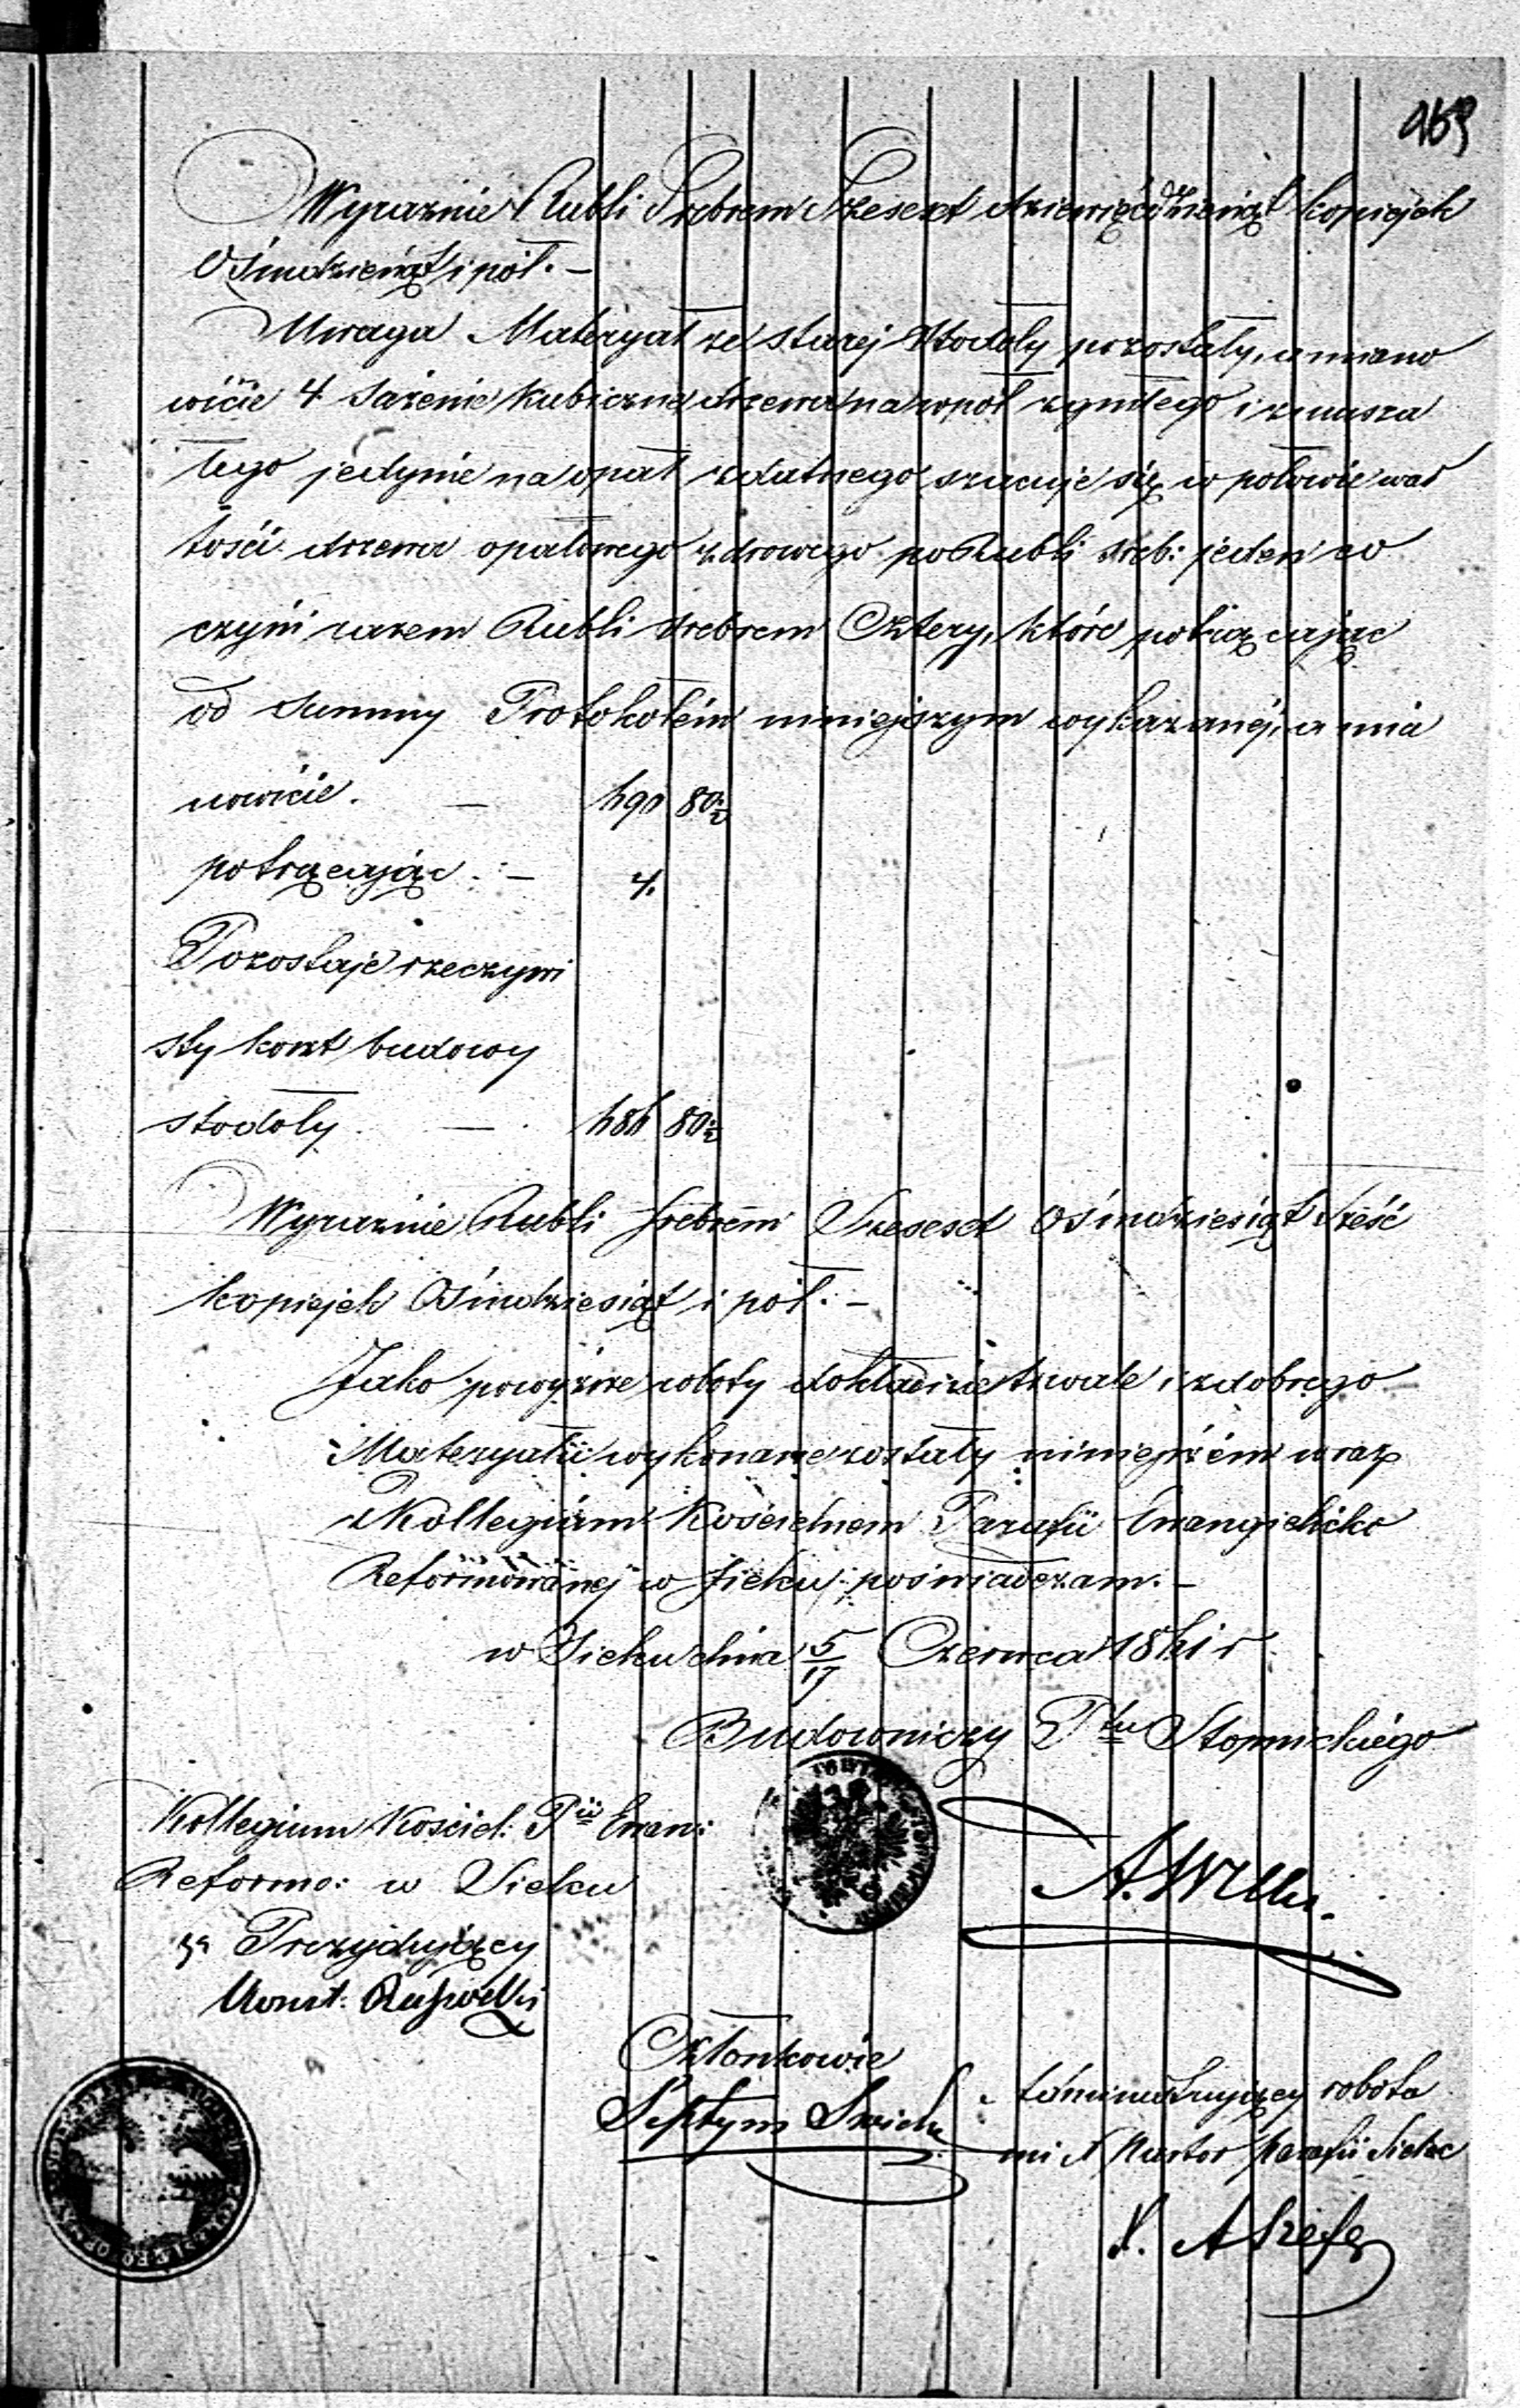 Wyraznie Rubli Srebrem Szesset dziewięćdziesiąt kopiejek
Ośmdziesiąt i pół. –
Uwaga Materyał ze starej Stodoły pozostały, a miano
wicie 4 Sążenie kubiczne drzewa na wpół zgniłego i zmursza
łego jedynie na opał zdatnego szacuje się w połowie war
tości drzewa opałowego zdrowego po Rubli sreb: jeden co
czyni razem Rubli srebrem Cztery, które potrącając
od Summy Protokołem niniejszym wykazanéj, a mia
nowicie. — 690 80½
potrącając. – 4.
Pozostaje rzeczywi
sty koszt budowy
stodoły. — 686 80½
Wyraznie Rubli Srebrem Szesset Ośmdziesiąt Sześć
kopiejek Ośmdziesiąt i pół. –
Jako powyższe roboty dokładnie trwale i z dobrego
Materyału wykonane zostały niniejszém wraz
z Kollegium Kościelnem Parafii Ewangielicko
Reformowanej w Sielcu poświadczam. –
w Sielcu dnia 5/17 Czerwca 1861 r
Budowniczy Ptu Stopnickiégo
Kollegium Kościel: Pii Ewan:
Reformo: w Sielcu
za Prezydujący
Członkowie
Septym
Administrujący robota
mi Pastor Parafii Sielec
X. A